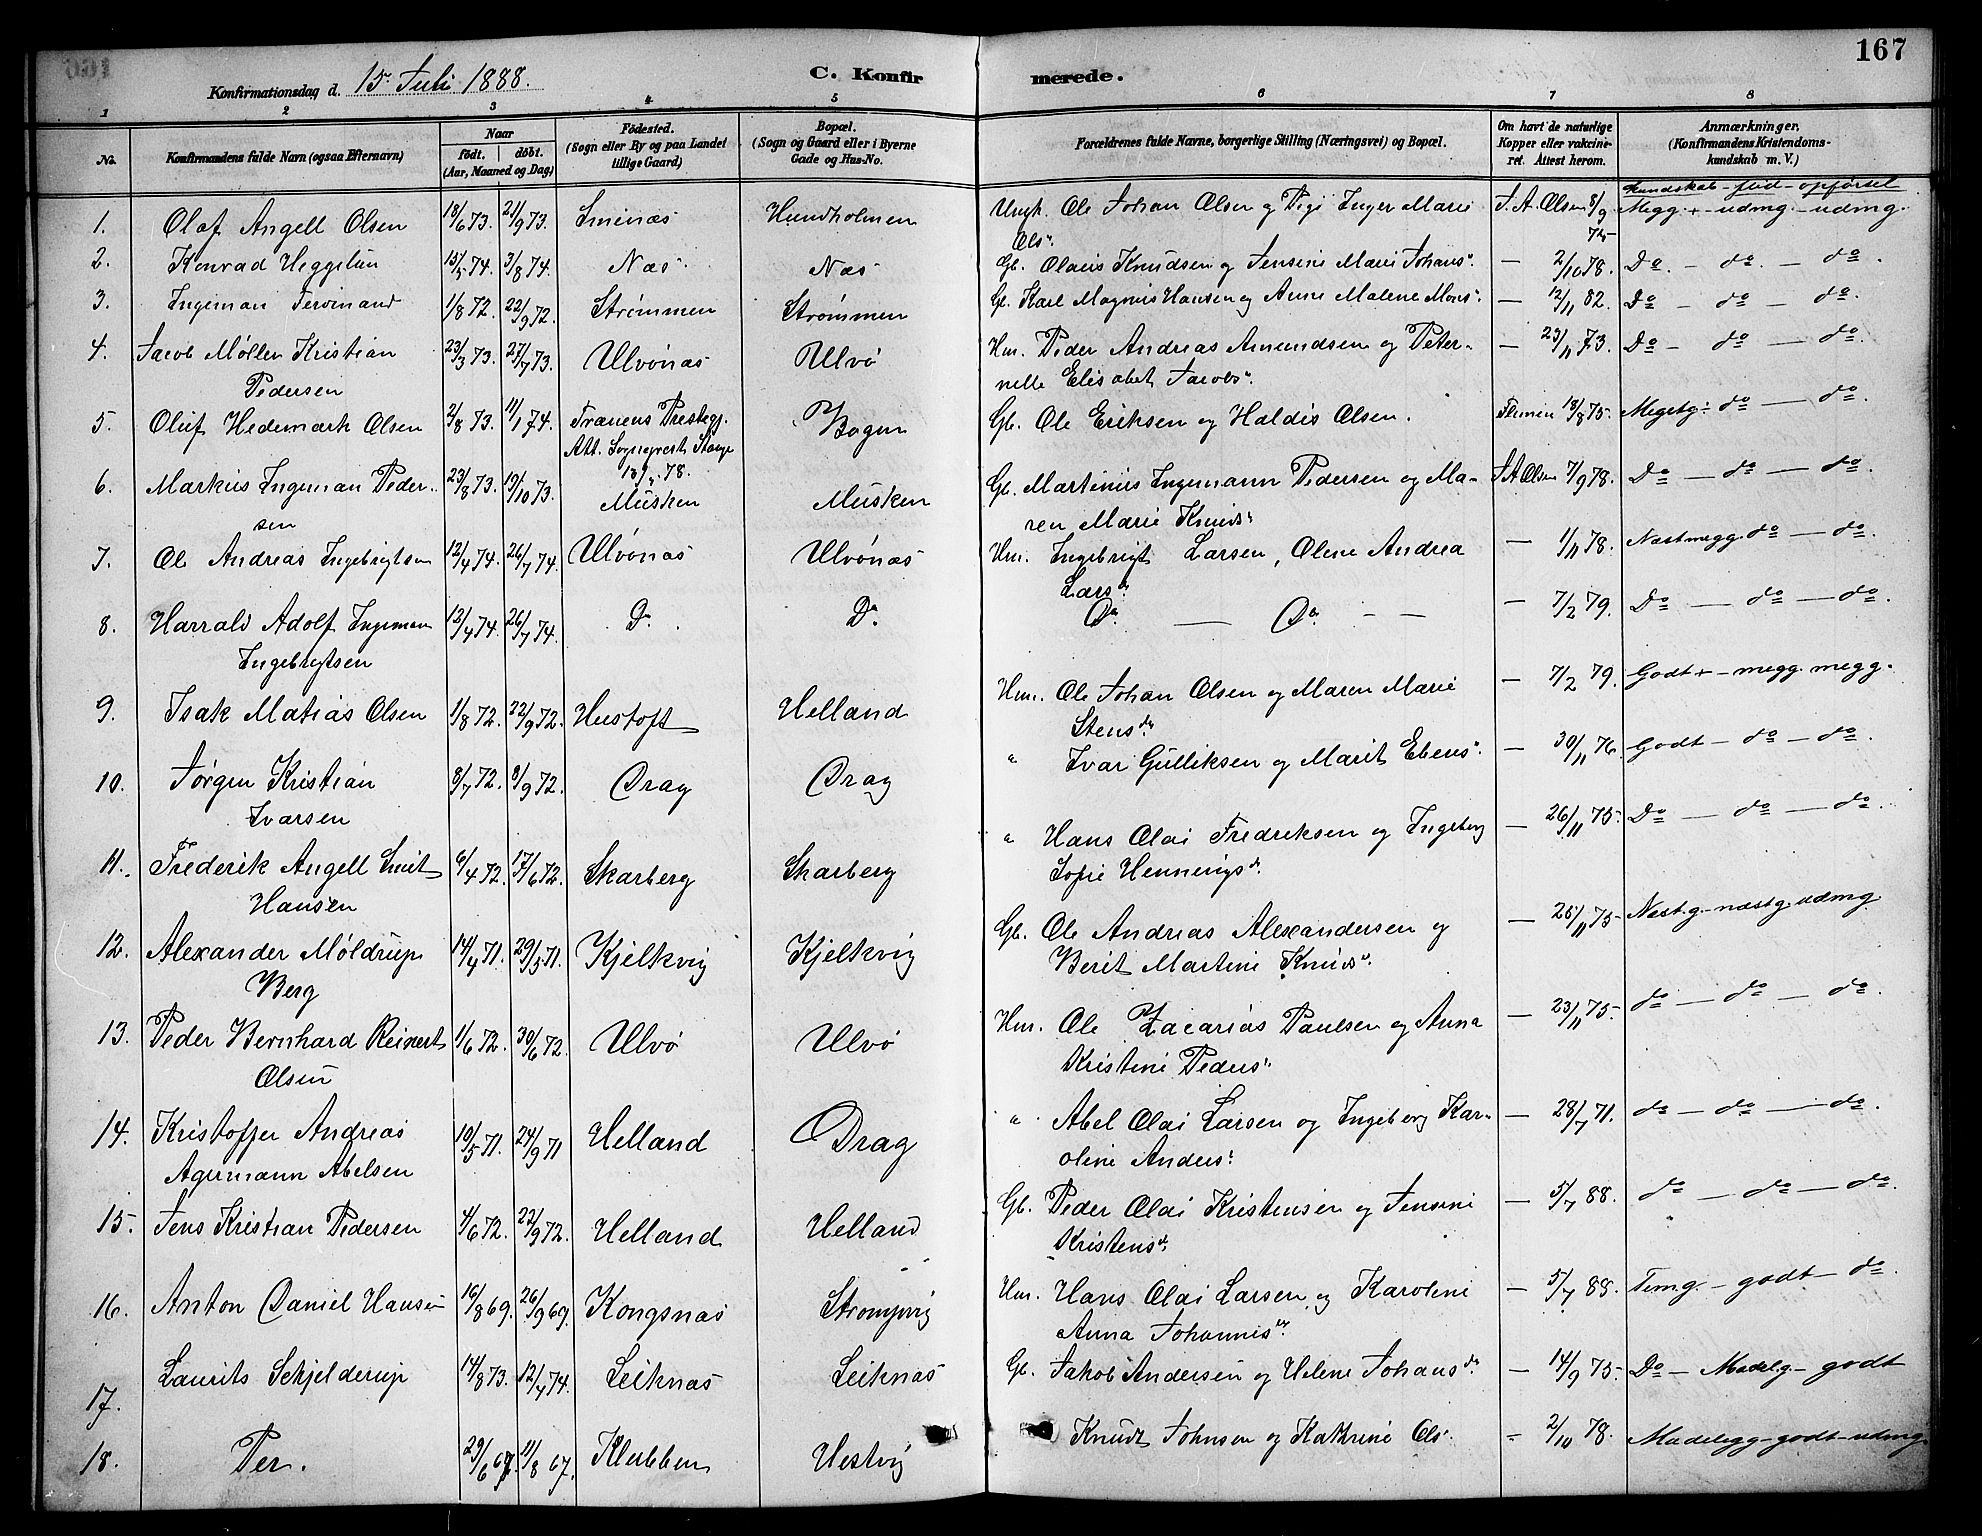 167
Konfirmationsdag d. 15 Juli 1888. C. Konfirmerede.
1 2 3 4 5 6 7 8
No. Konfirmandens fulde Navn (ogsaa Efternavn) Naar født. døbt. (Aar, Maaned og Dag) Fødested. (Sogn eller By og paa Landet tillige Gaard) Bopæl. (Sogn og Gaard eller i Byerne Gade og Hus-No. Forældrenes fulde Navne, borgerlige Stilling (Næringsvei) og Bopæl. Om havt de naturlige Kopper eller vakcineret. Attest herom. Anmærkninger. (Konfirmandens Kristendomskundskab m. V.)
Kundskab - flid - opførsel
1. Olaf Angell Olsen 18/6 73. 21/9 73. Hundholmen Ungk. Ole Johan Olsen og Pige Inger Marie Ols. J. A. Olsen 8/9 75 Megg + - udmg. - udmg.
2. Konrad Heggelun 15/5 74. 3/8 74. Næs Næs Gb. Olaus Knudsen og Jensine Marie Johans. — 2/10 78. Do. - do. - do.
3. Ingeman Ferdinand 1/8 72. 22/9 72. Strømmen Strømmen Gb. Karl Magnus Hansen og Anne Malene Mons. — 12/11 82. Do - do - do.
4. Jacob Møller Kristian Pedersen 23/3 73. 27/7 73. Ulvønæs Ulvø Hm. Peder Andreas Amundsen og Peternelle Elisabet Jacobs. — 23/11 73. Do - do - do.
5. Oluf Hedemark Olsen 2/8 73. 11/1 74. Tranens Prestegj. Att. Sogneprest Stange 78. Bogen Gb. Ole Eriksen og Haldis Olsen. 18/8 75. Megetg. do - do.
6. Markus Ingeman Pedersen 23/8 73. 19/10 73. Musken Musken Gb. Martinus Ingemann Pedersen og Maren Marie Knuds. J. A Olsen 7/9 78. Do - do - do.
7. Ole Andreas Ingebrigtsen 12/4 74. 26/7 74. Ulvønæs Ulvønæs Hm. Ingebrigt Larsen, Olene Andrea Lars. — 1/11 78. Næstmegg. do - do.
8. Harrald Adolf Ingeman Ingebrigtsen 12/4 74. 26/7 74. Do. Do. Do. — Do. — — 7/2 79. Do - do - do.
9. Isak Matias Olsen 1/8 72. 22/9 72. Hustoft Helland Hm. Ole Johan Olsen og Maren Marie Stensdr. — 7/2 79. Godt + - megg. megg.
10. Jørgen Kristian Ivarsen 8/7 72. 8/9 72. Drag Drag " Ivar Gulliksen og Marit Ebens. — 30/11 76. Godt - do - do.
11. Frederik Angell Smit Hansen 6/4 72. 17/6 72. Skarberg Skarberg " Hans Olai Fredriksen og Ingeborg Sofie Hennings dr. — 26/11 75. Do - do - do.
12. Alexander Møldrup Berg 14/4 71. 29/5 71. Kjelkvig Kjelkvig Gb. Ole Andreas Alexandersen og Berit Martine Knuds dr. — 25/11 75 Næst.g. - næstg. udmg
13. Peder Bernhard Reinert Olsen 1/6 72. 30/6 72. Ulvø Ulvø Hm. Ole Zacarias Paulsen og Anna Kristine Peders. — 23/11 75. do - do - do.
14. Kristoffer Andreas Agermann Abelsen 19/5 71. 24/9 71 Helland Drag " Abel Olai Larsen og Ingeborg Karoline Anders. — 28/7 71. do - do - do.
15. Jens Kristian Pedersen 4/6 72. 22/9 72. Helland Helland Gb. Peder Olai Kristensen og Jensine Kristens dr. — 5/7 88. do - do - do.
16. Anton Daniel Hansen 16/8 69. 26/9 69. Kongsnæs Hm. Hans Olai Larsen og Karoline Anna Johannis dr. — 5/7 88. Temg. - godt - do.
17. Laurits Schjelderup 14/8 73. 12/4 74. Leiknæs Leiknæs Gb. Jakob Andersen og Helene Johans dr. — 14/9 75. Do - Madelg. - godt
18. Per. 29/6 67. 11/8 67. Klubben Hestvig Knudt Johnsen og Kathrine Ols. — 2/10 78. Madelegg - godt - udmg.